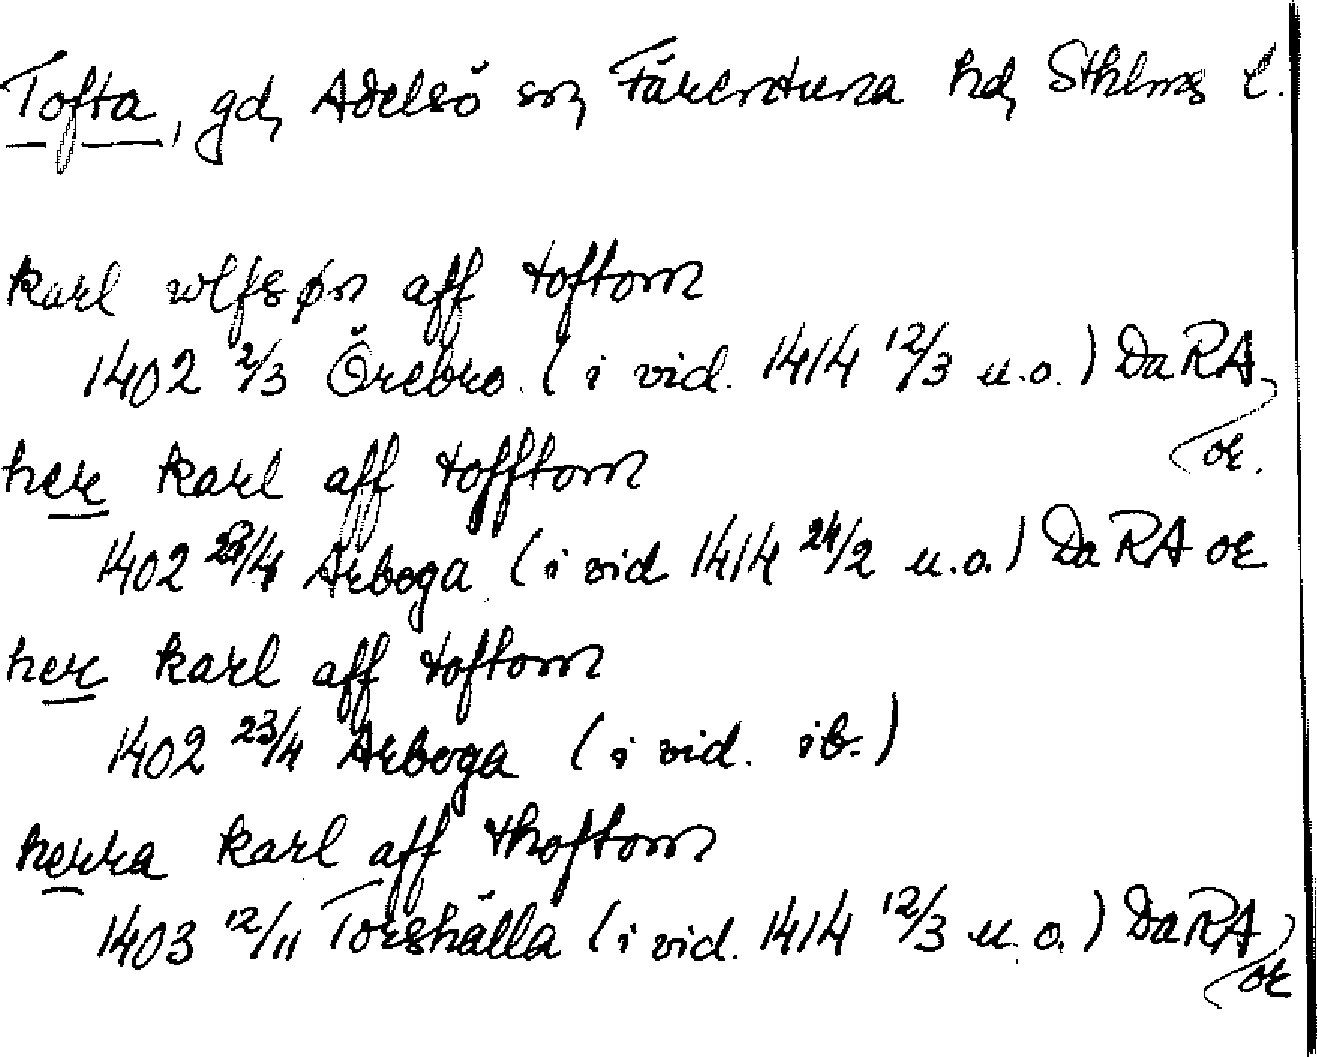 Tofta, gd, Adelsö sn, Färentuna hd, Sthlms l.
karl wlfsøn aff toftom
1402 2/3 Örebro (i vid. 1414 12/3 u.o.) DaRA
or.
her karl aff tofftom
1402 23/4 Arboga (i vid 1414 24/2 u.o.) DaRA or
her karl aff toftom
1402 23/4 Arboga (i vid. ib.)
herra karl aff thoftom
1403 12/11 Torshälla (i vid. 1414 12/3 u.o.) DaRA
or